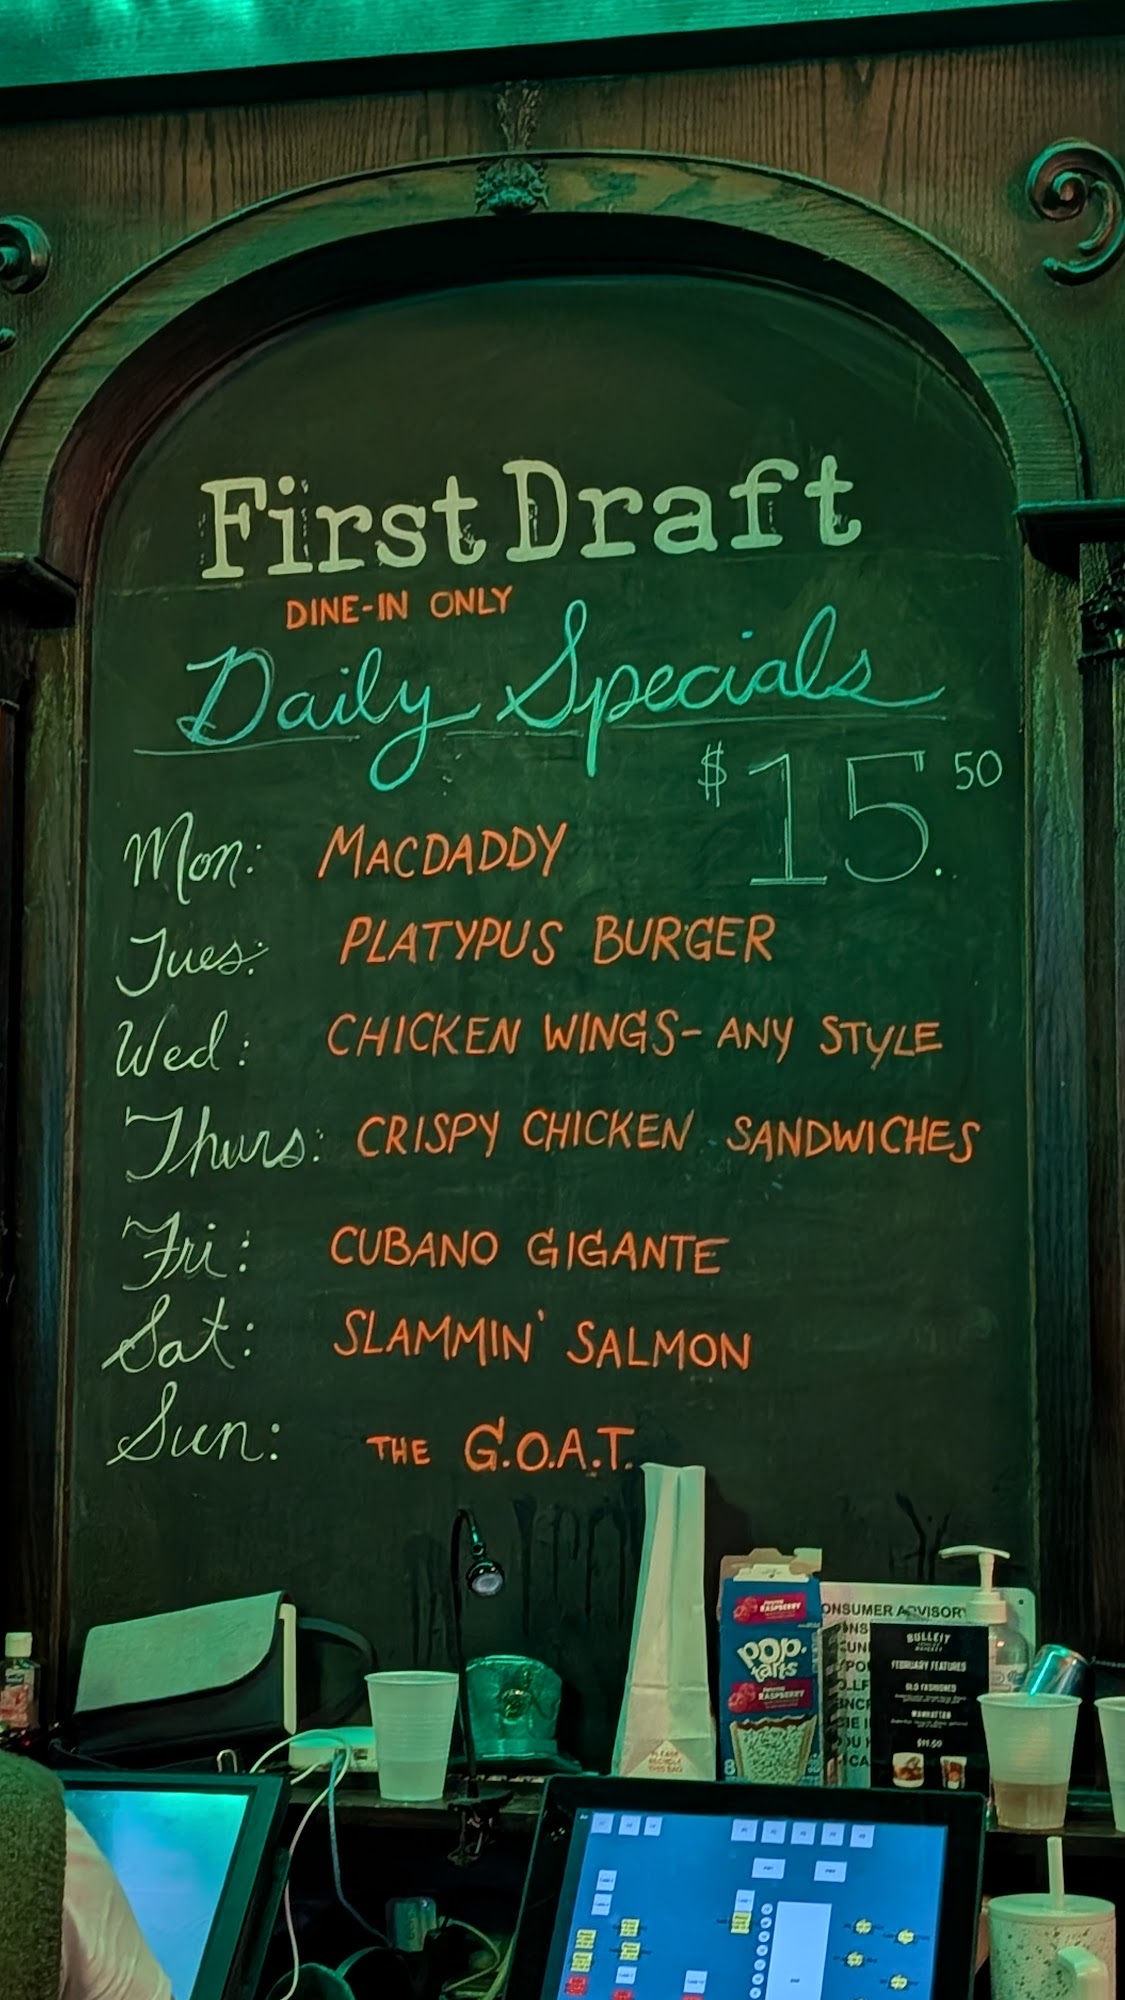 First Draft
DINE-IN ONLY
Daily Specials
$15.50
Mon: MACDADDY
Tues: PLATYPUS BURGER
Wed: CHICKEN WINGS- ANY STYLE
Thurs: CRISPY CHICKEN SANDWICHES
Fri: CUBANO GIGANTE
Sat: SLAMMIN' SALMON
Sun: THE G.O.A.T.
RASPBERRY
pop.tarts
RASPBERRY
8
PLEASE
RECYCLE
THIS BAG
ONSUMER ADVISORY
BULLEIT
FEBRUARY FEATURES
OLD FASHIONED
MANHATTAN
$11.50